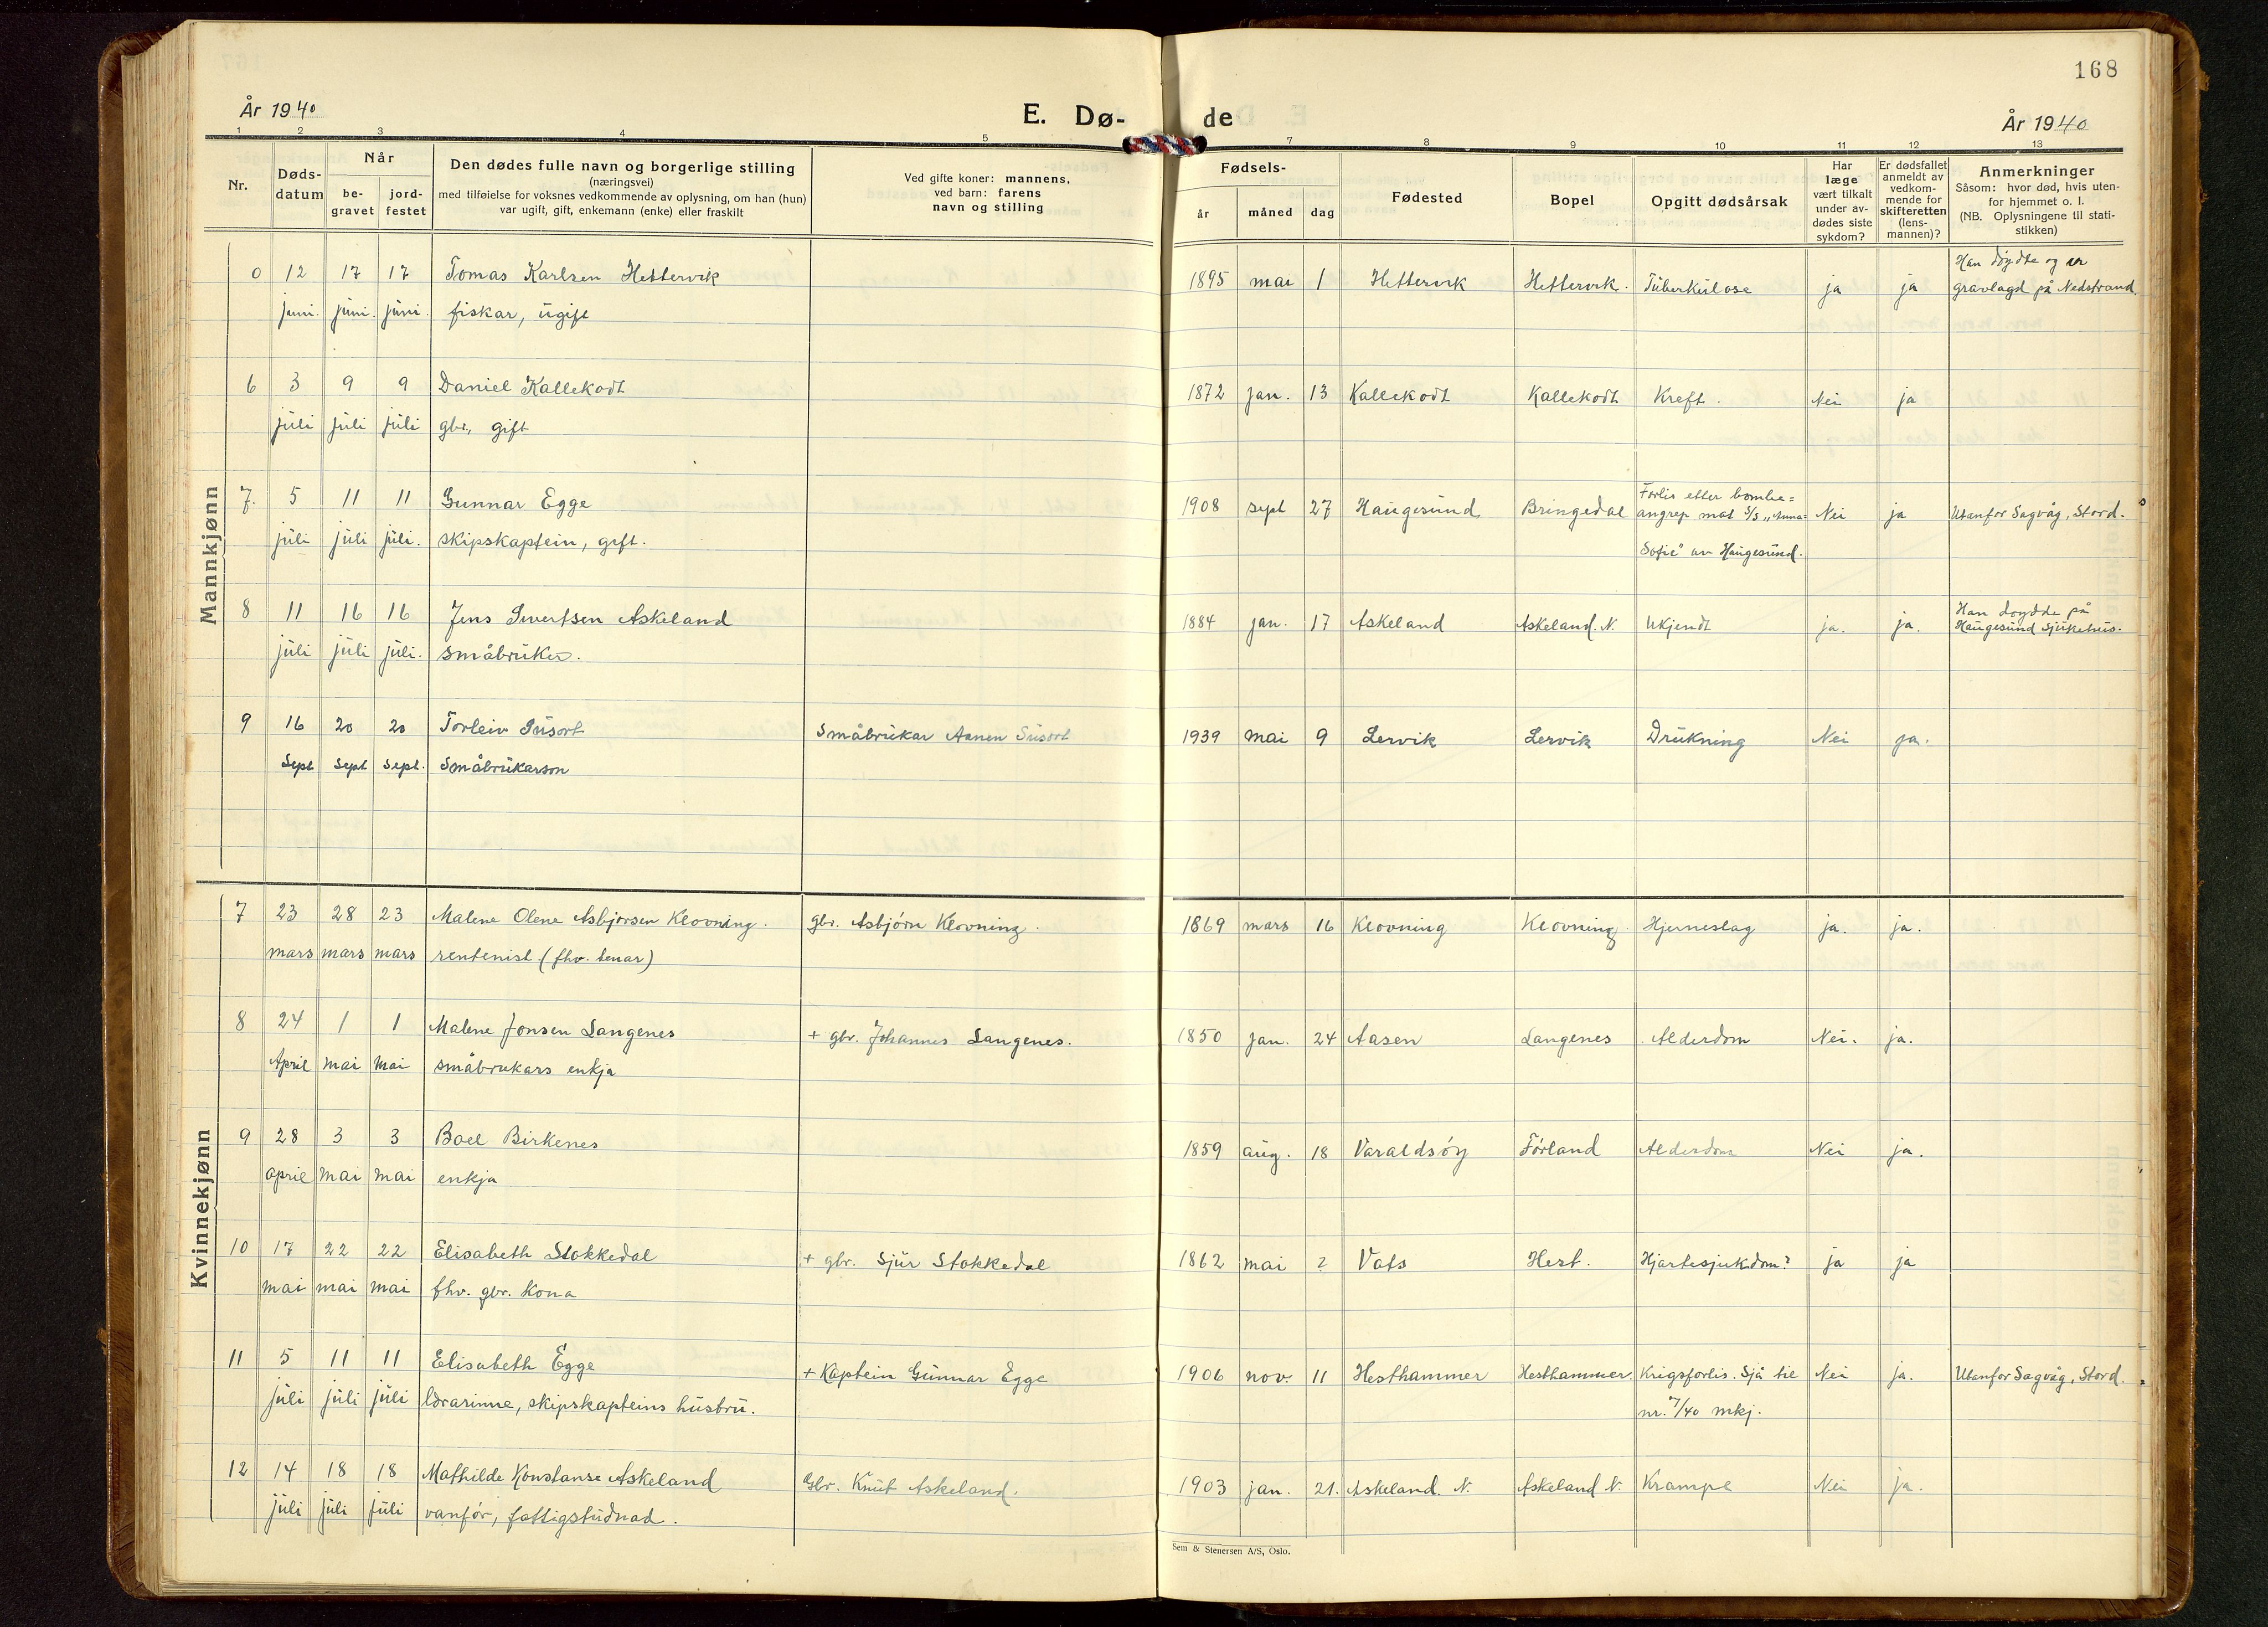 168
År 1940
E. Dø-
de
År 1940
1 2 3 4 5
7 8 9 10 11 12 13
Nr.
Døds-
datum
Når
be-
gravet
jord-
festet
Den dødes fulle navn og borgerlige stilling
(næringsvei)
med tilføielse for voksnes vedkommende av oplysning, om han (hun)
var ugift, gift, enkemann (enke) eller fraskilt
Ved gifte koner: mannens,
ved barn: farens
navn og stilling
Fødsels-
år
måned
dag
Fødested
Bopel
Opgitt dødsårsak
Har
læge
vært tilkalt
under av-
dødes siste
sykdom?
Er dødsfallet
anmeldt av
vedkom-
mende for
skifteretten
(lens-
mannen)?
Anmerkninger
Såsom: hvor død, hvis uten-
for hjemmet o. l.
(NB. Oplysningene til stati-
stikken)
Mannkjønn
0 12 17 17 Tomas Karlsen Hettervik
juni. juni. juni. fiskar, ugift
1895 mai 1 Hettervik Hettervik. Tuberkulose ja ja
Han døydde og er
gravlagd på Nedstrand.
6 3 9 9 Daniel Kallekodt
juli juli juli gbr., gift
1872 jan. 13 Kallekodt Kallekodt Kreft. Nei ja
7. 5 11 11 Gunnar Egge
juli juli juli. skipskaptein, gift.
1908 sept 27 Haugesund Bringedal
Forlis etter bombe=
angrep mot S/S „Anna=
Sofie" av Haugesund.
Nei ja Utanfor Sagvåg, Stord.
8 11 16 16 Jens Sivertsen Askeland
juli juli juli. småbruker.
1884 jan. 17 Askeland Askeland. N. Ukjendt ja. ja.
Han døydde på
Haugesund Sjukehus.
9 16 20 20 Torleiv Susort Småbrukar Aanen Susort
Sept Sept Sept. Småbrukarson
1939 mai 9 Lervik Lervik Drukning Nei ja.
Kvinnekjønn
7 23 28 23 Malene Olene Asbjørsen Klovning. gbr. Asbjørn Klovning.
mars mars mars rentenist (fhv. tenar)
1869 mars 16 Klovning Klovning. Hjerneslag ja. ja.
8 24 1 1 Malene Jonsen Langenes + gbr. Johannes Langenes.
April mai mai småbrukars enkja
1850 jan. 24 Aasen Langenes Alderdom Nei. ja.
9 28 3 3 Boel Birkenes
april mai mai enkja
1859 aug. 18 Varaldsöy Förland Alderdom Nei ja.
10 17 22 22 Elisabeth Stokkedal + gbr. Sjur Stokkedal
mai mai mai fhv. gbr. Kona
1862 mai 2 Vats Hest. Hjartesjukdom? ja ja
11 5 11 11 Elisabeth Egge + Kaptein Gunnar Egge
juli juli juli lærarinne, skipskapteins husbru.
1906 nov. 11 Hesthammer Hesthammer. Krigsforlis. Sjå til Nei ja. Utanfor Sagvåg, Stord.
nr. 7/40 mkj.
12 14 18 18 Mathilde Konstanse Askeland Gbr. Knut Askeland.
juli juli juli vanför, fattigstudnad.
1903 jan. 21. Askeland. N. Askeland N. Krampe Nei ja.
Sem & Stenersen A/S, Oslo.